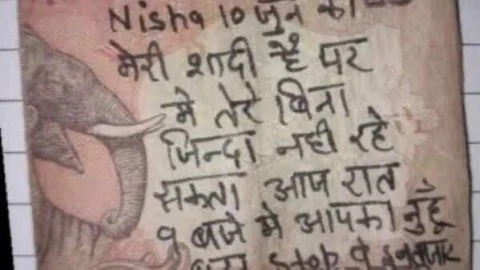 Nisha 10 जुन को
मेरी शादी है पर
मे तेरे बिना
जिन्दा नही रहे
सकता आज रात
9 बजे मे आपका
बस stop पे इन्तजार